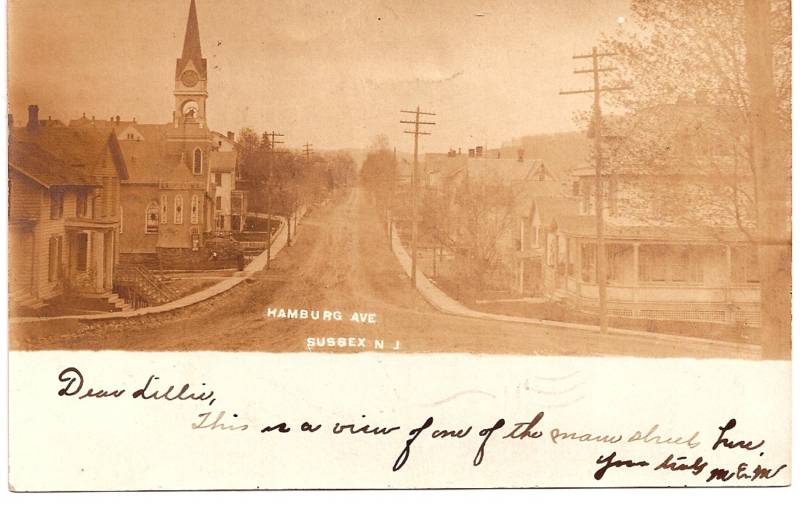 HAMBURG AVE
SUSSEX N J
Dear Lillie,
This is a view of one of the main streets here.
Yours truly
M E M